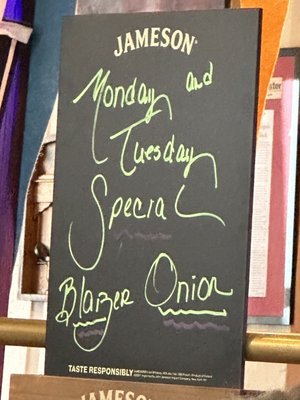 JAMESON
Monday and
Tuesday
Special
Blaizer Onion
TASTE RESPONSIBLY
JAMESO